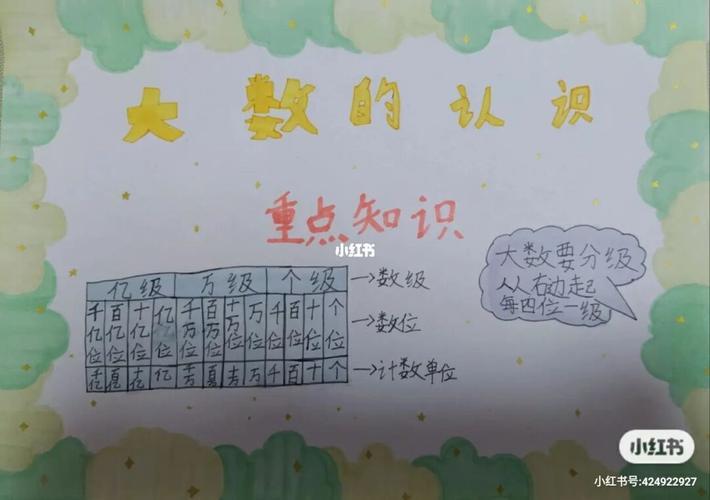 大数的认识
重点知识
小红书
亿级 万级 个级 →数级
千亿位 百亿位 十亿位 亿位 千万位 百万位 十万位 万位 千位 百位 十位 个位 →数位
千亿 百亿 十亿 亿 千万 百万 十万 万 千 百 十 个 →计数单位
大数要分级
从右边起
每四位一级
小红书
小红书号:424922927